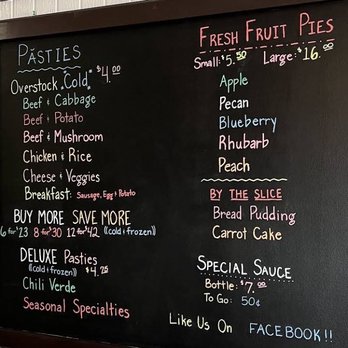 PĀSTIES
Overstock "Cold" $4.00
Beef & Cabbage
Beef & Potato
Beef & Mushroom
Chicken & Rice
Cheese & Veggies
Breakfast: Sausage, Egg & Potato
BUY MORE SAVE MORE
6 for $23 8 for $30 12 for $42 ((cold & frozen))
DELUXE Pasties
((cold & frozen)) $4.25
Chili Verde
Seasonal Specialties
FRESH FRUIT PIES
Small: $5.50 Large: $16.00
Apple
Pecan
Blueberry
Rhubarb
Peach
BY THE SLICE
Bread Pudding
Carrot Cake
SPECIAL SAUCE
Bottle: $7.00
To Go: 50¢
Like Us On FACEBOOK!!